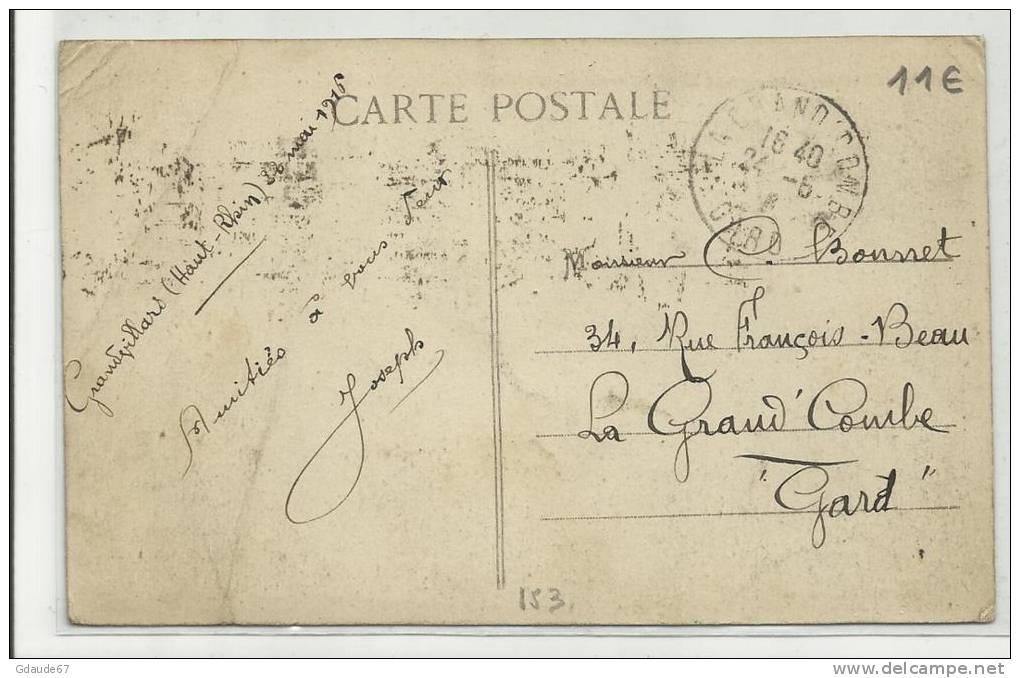 CARTE POSTALE
11€
LA GRAND'COMBE
18 40
GARD
Grandvillars (Haut-Rhin) 30 mai 1916
Amitiés à vous deux
Joseph
Monsieur C. Bonnet
34, Rue François-Beau
La Grand'Combe
"Gard"
153.
Gdaude67
www.delcampe.net